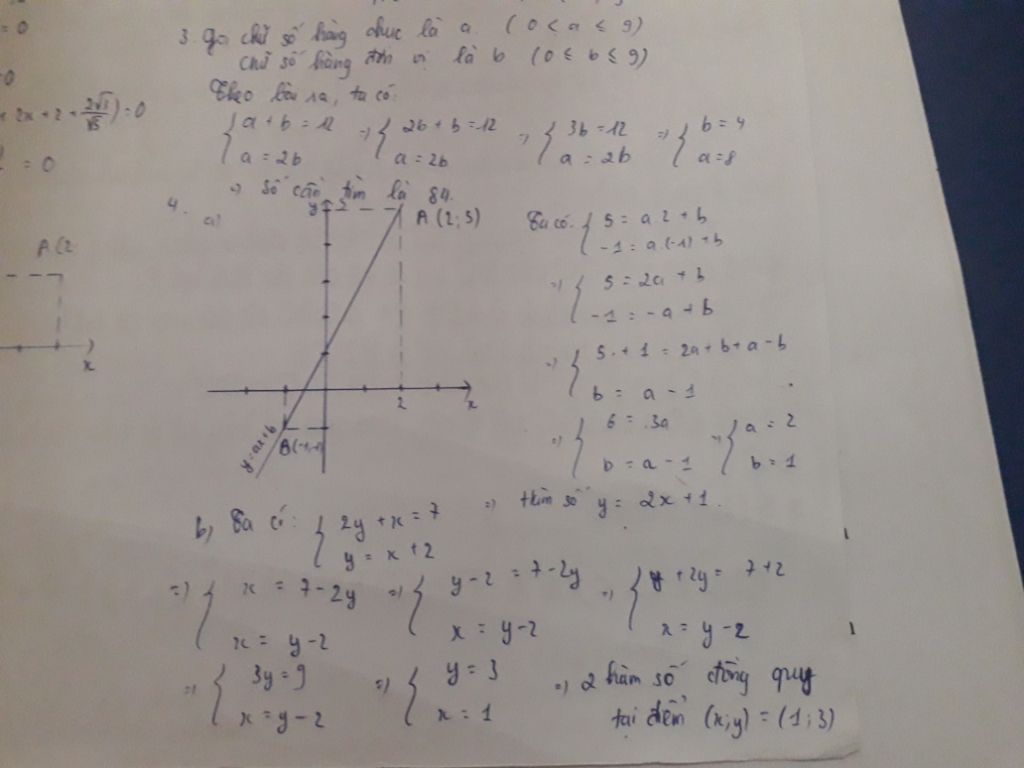 = 0
=0
2x + 2 + 2√3/√3) = 0
= 0
A(2
x
3. Gọi chữ số hàng chục là a. (0 < a ≤ 9)
chữ số hàng đơn vị là b (0 ≤ b ≤ 9)
Theo bài ra, ta có:
{ a + b = 12 ⇒ { 2b + b = 12 ⇒ { 3b = 12 ⇒ { b = 4
a = 2b a = 2b a = 2b a = 8
⇒ Số cần tìm là 84.
4. a)
y 5
A (2; 5)
2
x
B(-1,-1)
y=ax+b
Ta có: { 5 = a.2 + b
-1 = a.(-1) + b
⇒ { 5 = 2a + b
-1 = -a + b
⇒ { 5 + 1 = 2a + b + a - b
b = a - 1
⇒ { 6 = 3a ⇒ { a = 2
b = a - 1 b = 1
⇒ hàm số y = 2x + 1.
b, Ta có: { 2y + x = 7
y = x + 2
⇒ { x = 7 - 2y ⇒ { y - 2 = 7 - 2y ⇒ { y + 2y = 7 + 2
x = y - 2 x = y - 2 x = y - 2
⇒ { 3y = 9 ⇒ { y = 3 ⇒ 2 hàm số đồng quy
x = y - 2 x = 1 tại điểm (x;y) = (1;3)